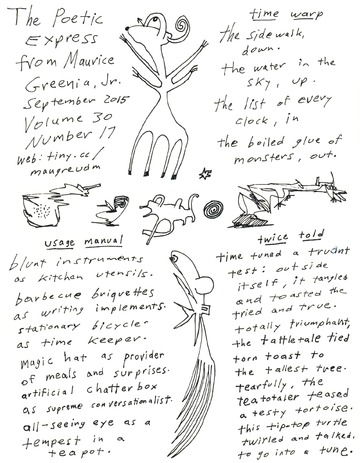 The Poetic
Express
from Maurice
Greenia, Jr.
September 2015
Volume 30
Number 17
web: tiny.cc/
maugreudm
time warp
the sidewalk,
down.
the water in the
sky, up.
the list of every
clock, in
the boiled glue of
monsters, out.
usage manual
blunt instruments
as kitchen utensils.
barbecue briquettes
as writing implements.
stationary bicycle
as time keeper.
magic hat as provider
of meals and surprises.
artificial chatterbox
as supreme conversationalist.
all-seeing eye as a
tempest in a
teapot.
twice told
time tuned a truant
test: outside
itself, it tangled
and toasted the
tried and true.
totally triumphant,
the tattletale tied
torn toast to
the tallest tree.
tearfully, the
teatotaler teased
a testy tortoise.
this tip-top turtle
twirled and talked,
to go into a tune.